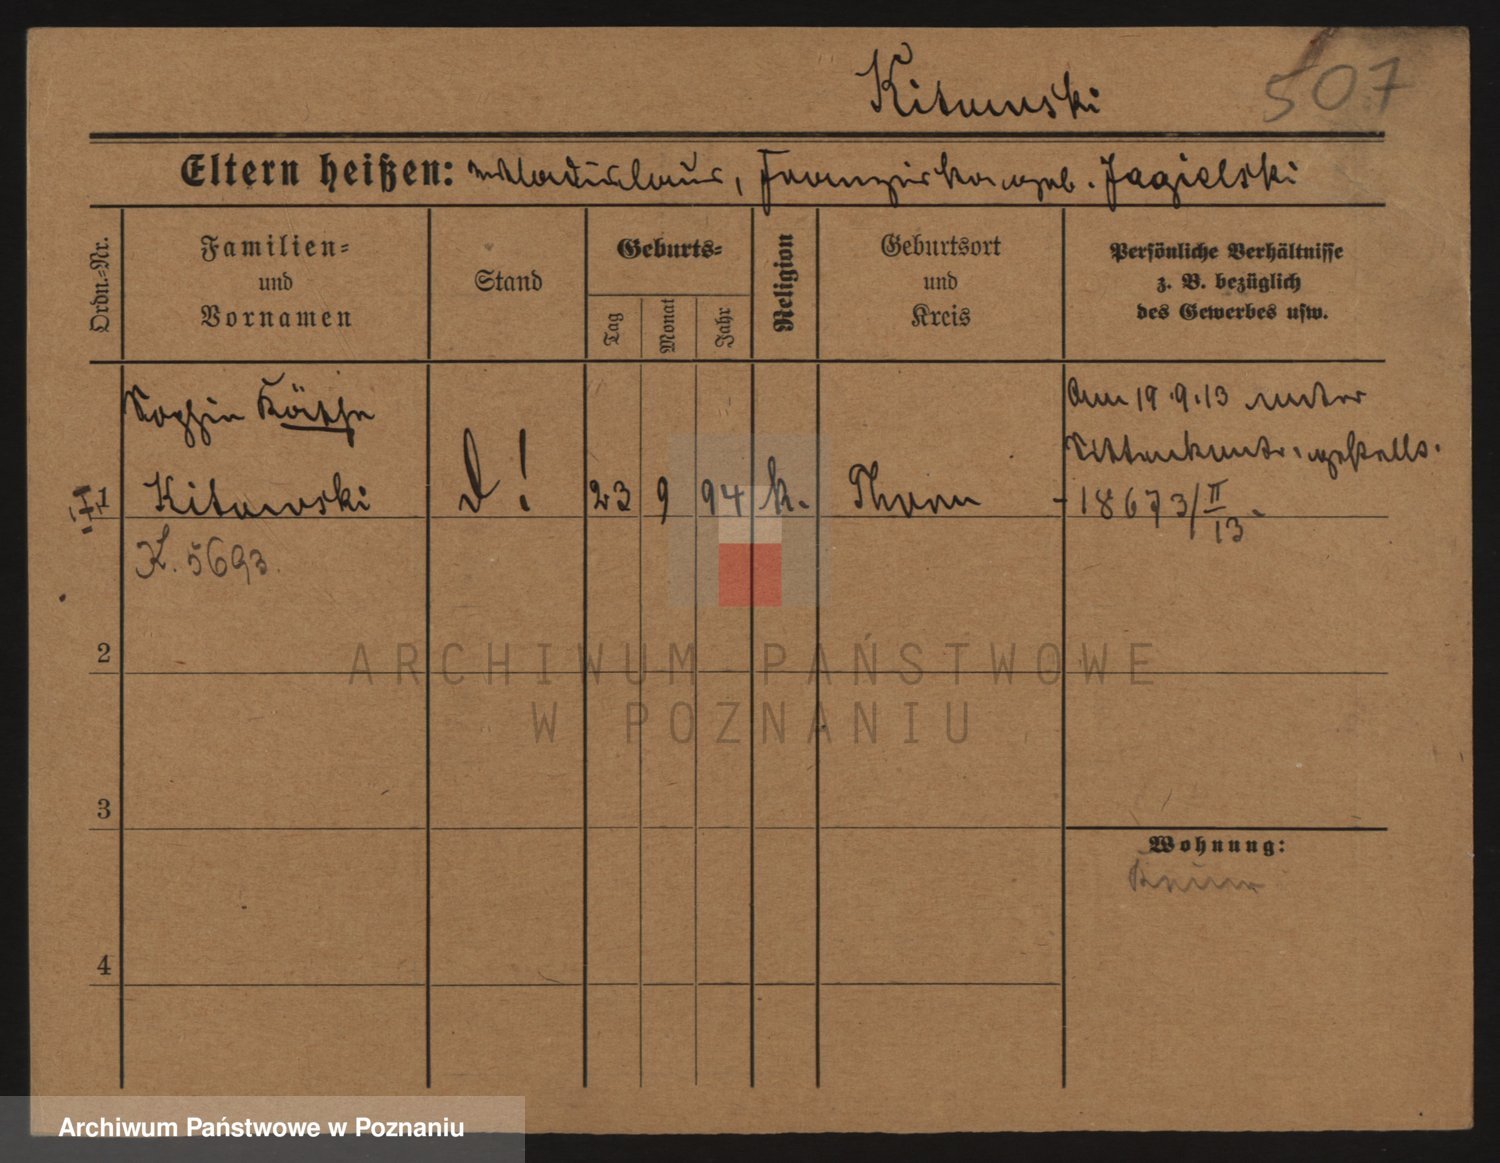 507
Kitowski
Eltern heißen: Wladislaus, Franziska geb. Jagielski
Ordn.-Nr.
Familien-
und
Vornamen
Stand
Geburts-
Tag
Monat
Jahr
Religion
Geburtsort
und
Kreis
Persönliche Verhältnisse
z. B. bezüglich
des Gewerbes usw.
Sophie Käthe
Am 19.9.13 unter
Sittenkontr. gestellt.
1 Kitowski D! 23 9 94 k. Thorn - 18673/II
13.
K. 5693.
2
ARCHIWUM PAŃSTWOWE
W POZNANIU
3
Wohnung:
4
Archiwum Państwowe w Poznaniu